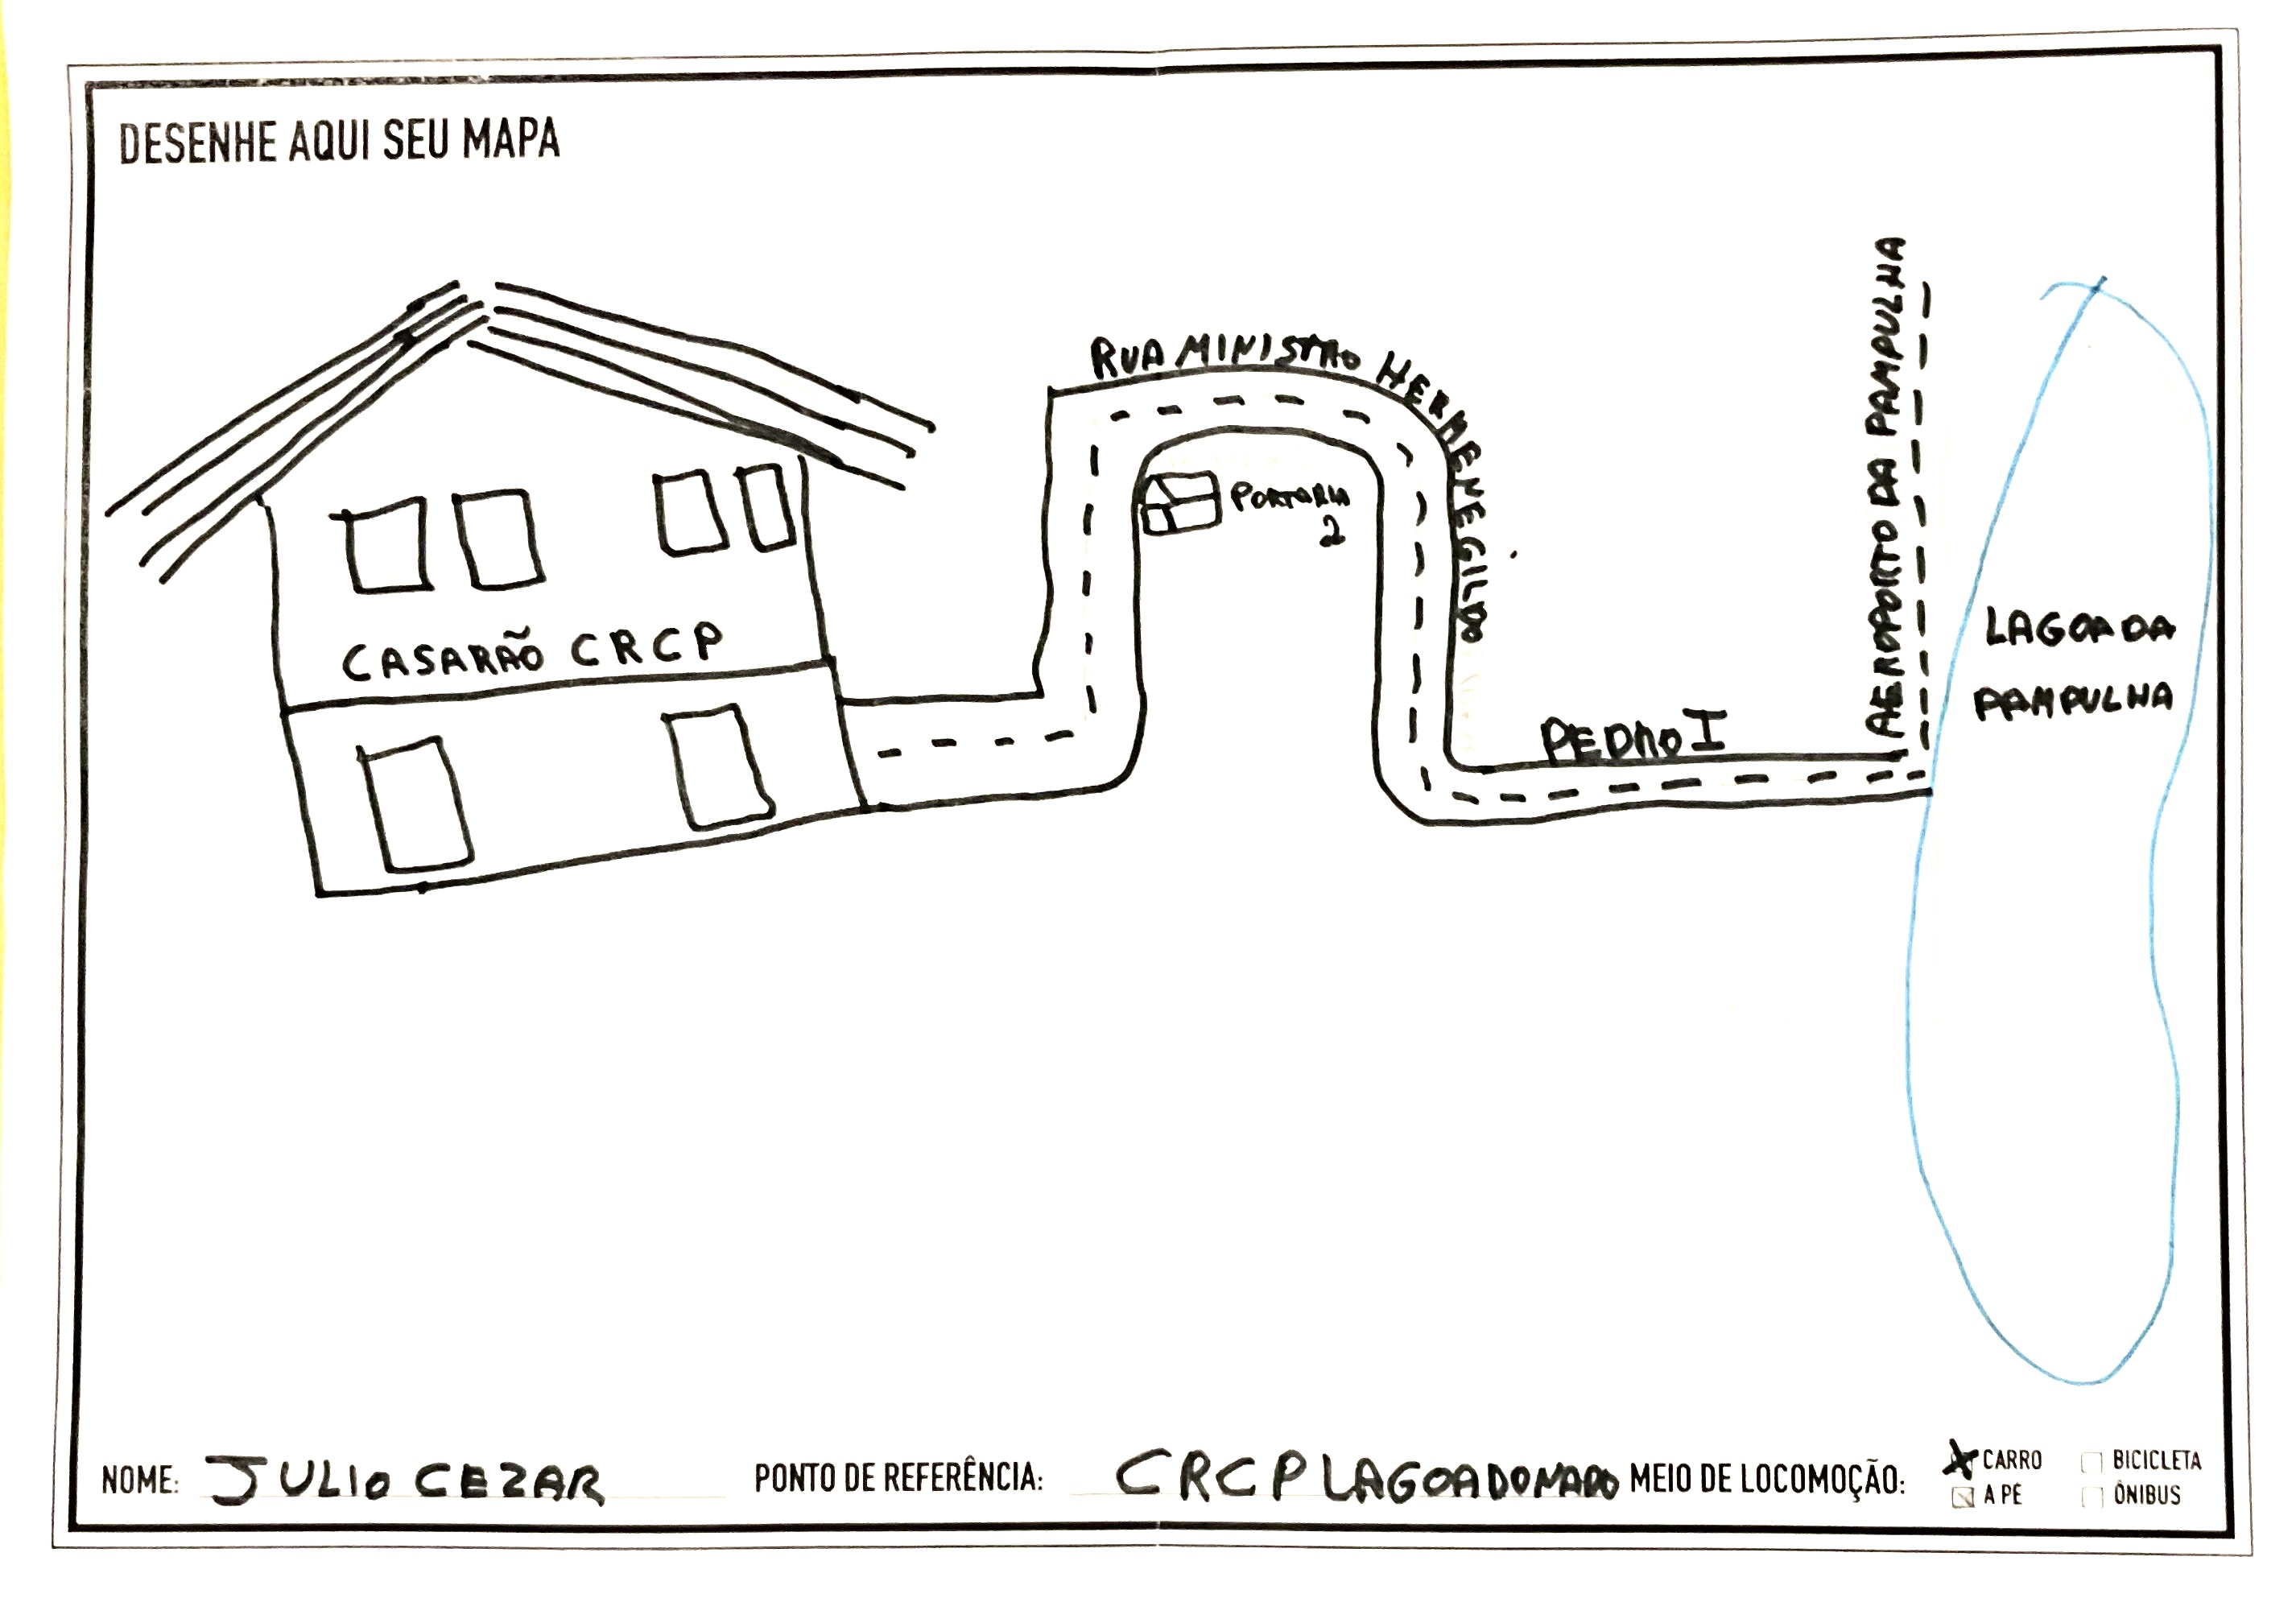 DESENHE AQUI SEU MAPA
CASARÃO CRCP
RUA MINISTRO HERMENEGILDO
PORTARIA
2
PEDRO I
AEROPORTO DA PAMPULHA
LAGOA DA
PAMPULHA
NOME: JULIO CEZAR
PONTO DE REFERÊNCIA: CRCP LAGOA DO NADO
MEIO DE LOCOMOÇÃO:
CARRO
BICICLETA
A PÉ
ÔNIBUS